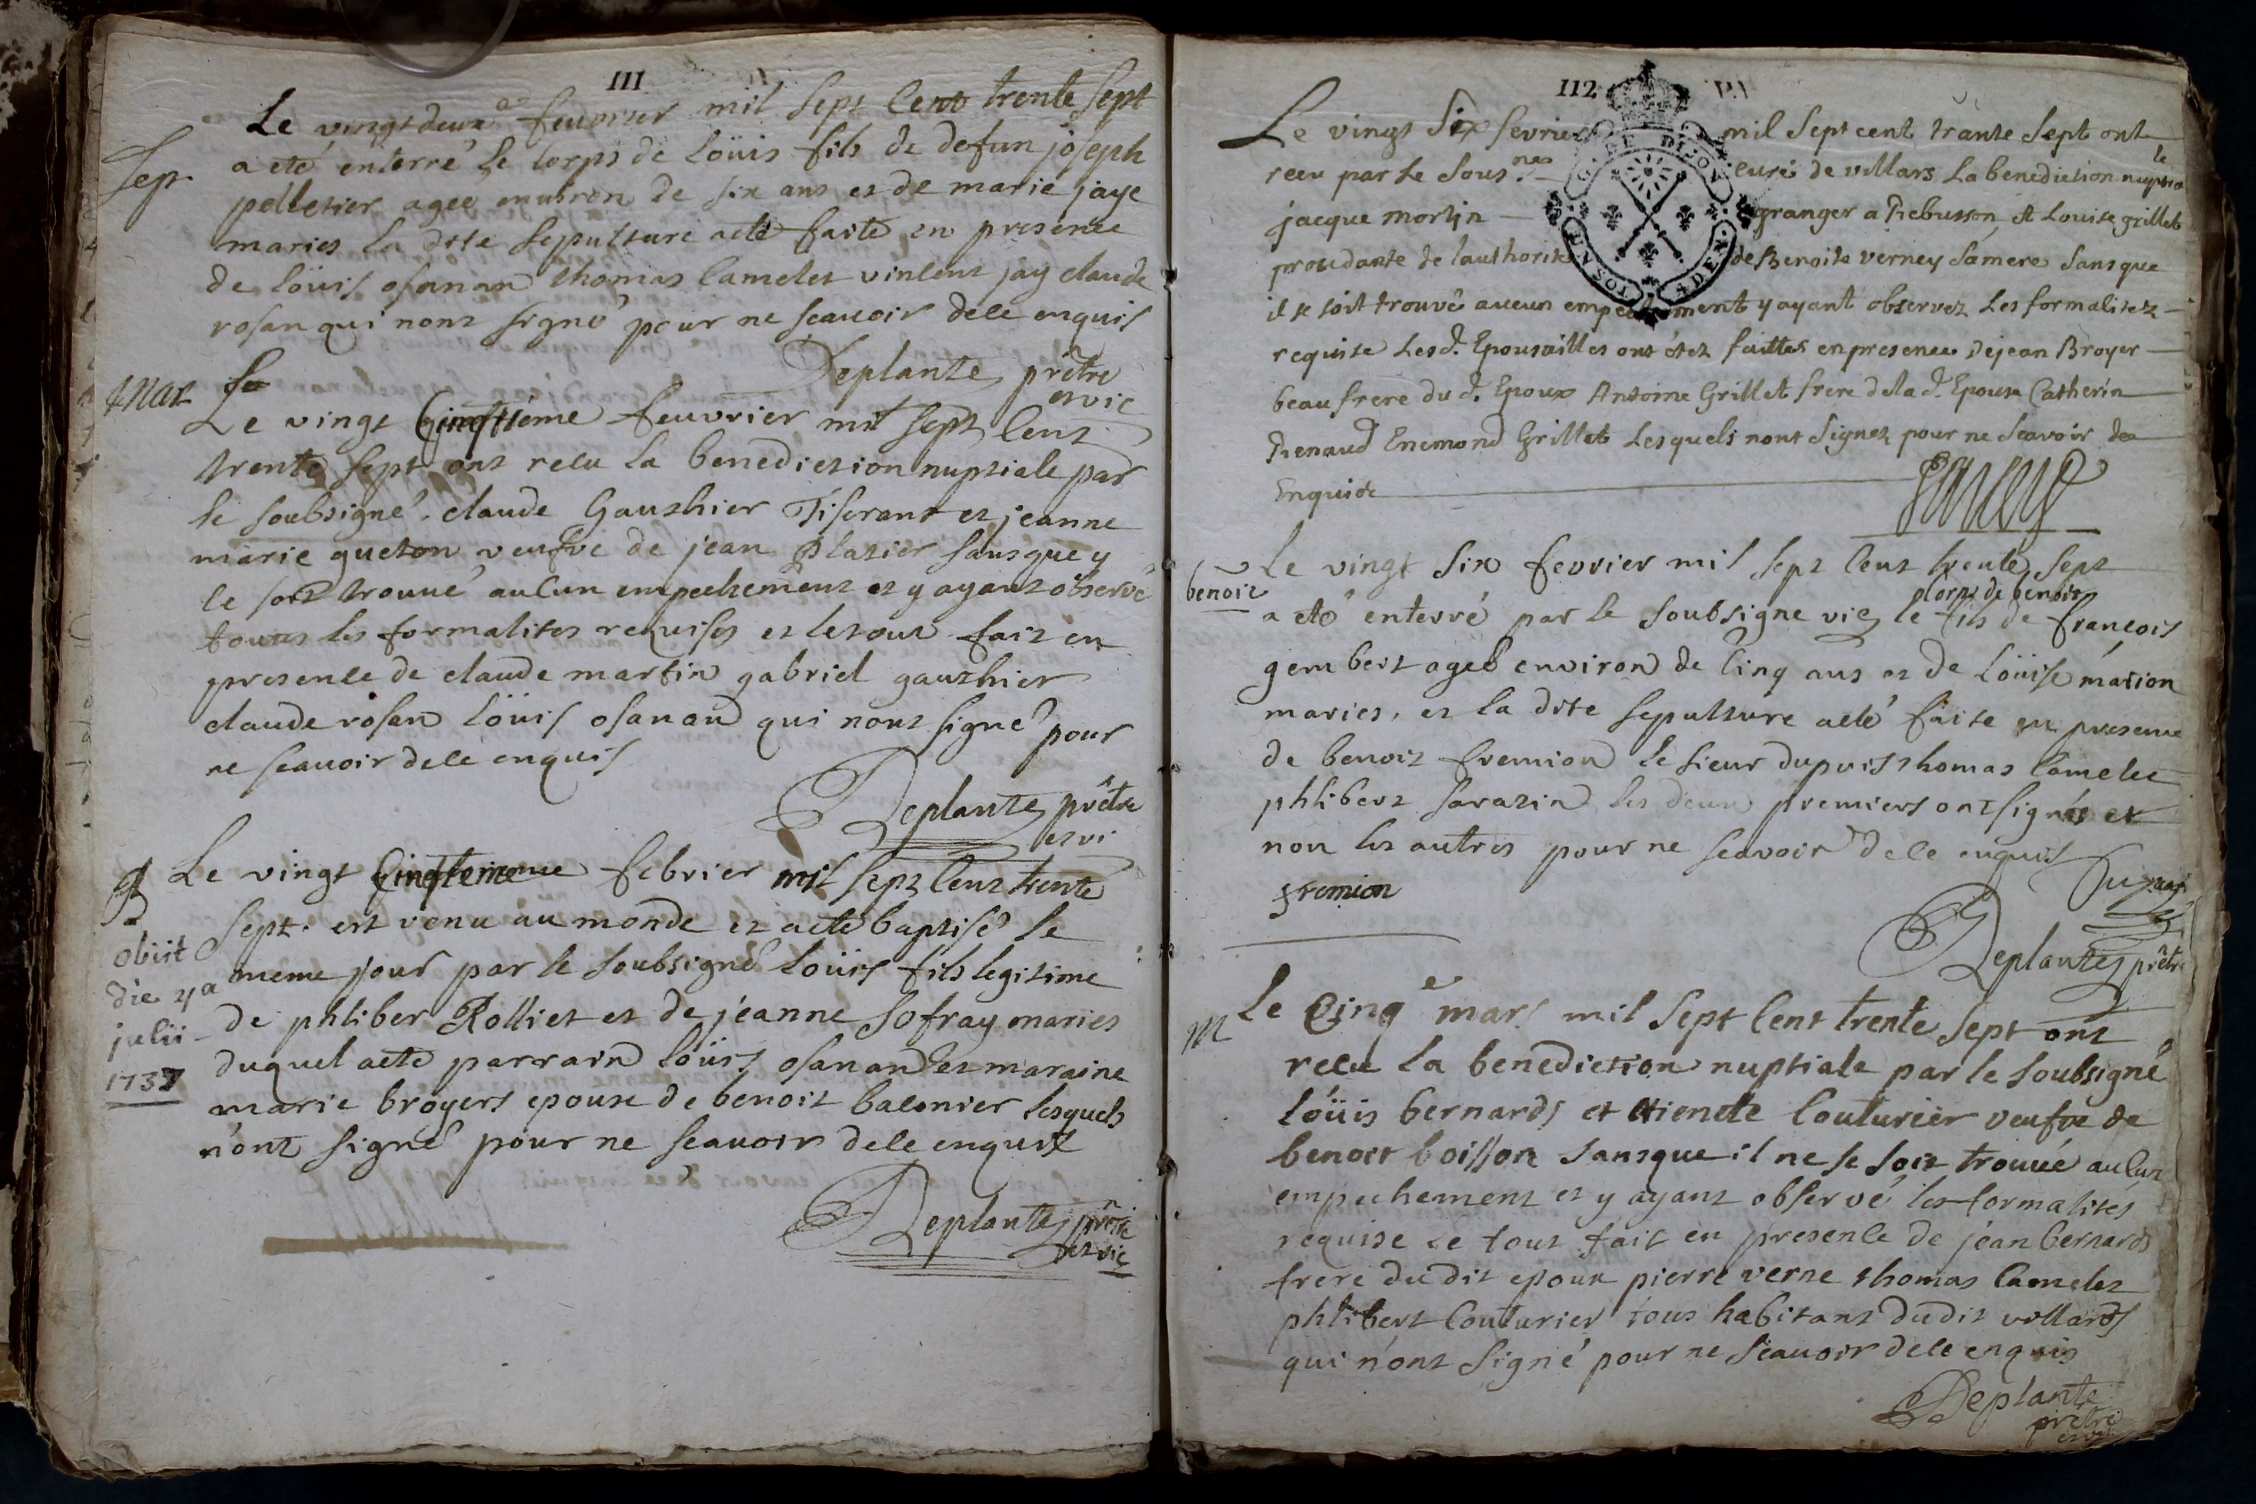 111
Le vingt deux feuvrier mil sept cent trente sept
Sep. a eté enterré le corps de loüis fils de defun joseph
pelletier ageé environ de six ans et de marie jaye
maries la dite sepulture aeté faite en presence
de loüis osanan thomas camelet vincent jay claude
rosan qui nont signé pour ne scauoir dele enquis
Deplante prêtre
et vic
Mar Le vingt cinqtième feuvrier mil sept cent
trente sept ont recu la benediction nuptiale par
le soubsigné claude Gauthier Tiserant et jeanne
marie gueton veufve de jean Blatier sans que y
ce soit trouué aucun empechement et y ayant observé
toutes les formalites requises et letout fait en
presence de claude martin gabriel gauthier
claude rosan loüis osanand qui nont signé pour
ne scauoir dele enquis
Deplante prêtre
et vi
B Le vingt cinqtieme febrier mil sept cent trente
sept. est venu au monde et aeté baptisé le
obiit
meme jour par le soubsigné loüis fils legitime
die 4a
de phliber Rolliet et de jeanne Sofray maries
julii
duquel aeté parrain loüis osanand et maraine
1737
marie broyers epouse de benoit baconier lesquels
n'ont signé pour ne scauoir dele enquis
Deplante prêtre
et vic
112
Le vingt six fevrier mil sept cent trante sept ont
receu par le sous.né curé de villars la benediction nuptiale
jacque mortin granger a Rebusson et Louise grillet
procdante de lauthorité de Benoite verney sa mere sans que
il se soit trouvé aucun empechement y ayant observez les formalitez
requise Lesd. Epousailles ont étez faittes en presence de jean Broyer
beau frere du d. Epoux Antoine Grillet frere de la d. Epouse Catherin
Renaud Enemond Grillet Lesquels nont signez pour ne scavoir de
Enquise
benoit Le vingt six fevrier mil sept cent trente sept
corps de benoit
a eté enterré par le soubsigne vic le fils de françois
gembert ageé environ de cinq ans et de loüise marion
maries, et la dite sepulture aeté faite en presence
de benoit fremion le sieur dupuis thomas camelet
phlibert sarazin les deux premiers ont signés et
non les autres pour ne scavoir dele enquis
fremion
Deplante prêtre
M Le Cinqe mars mil sept cent trente sept ont
recu la benediction nuptiale par le soubsigné
loüis bernards et etienete Couturier veufve de
benoit boisson sans que il ne se soit trouué aucun
empechement et y ayant observé les formalites
requise le tout fait en presence de jean bernards
frere du dit epoux pierre verne thomas Camelet
phlibert Couturier tous habitans dudit villards
qui n'ont signé pour ne scauoir dele enquis
Deplante
prêtre
et vic